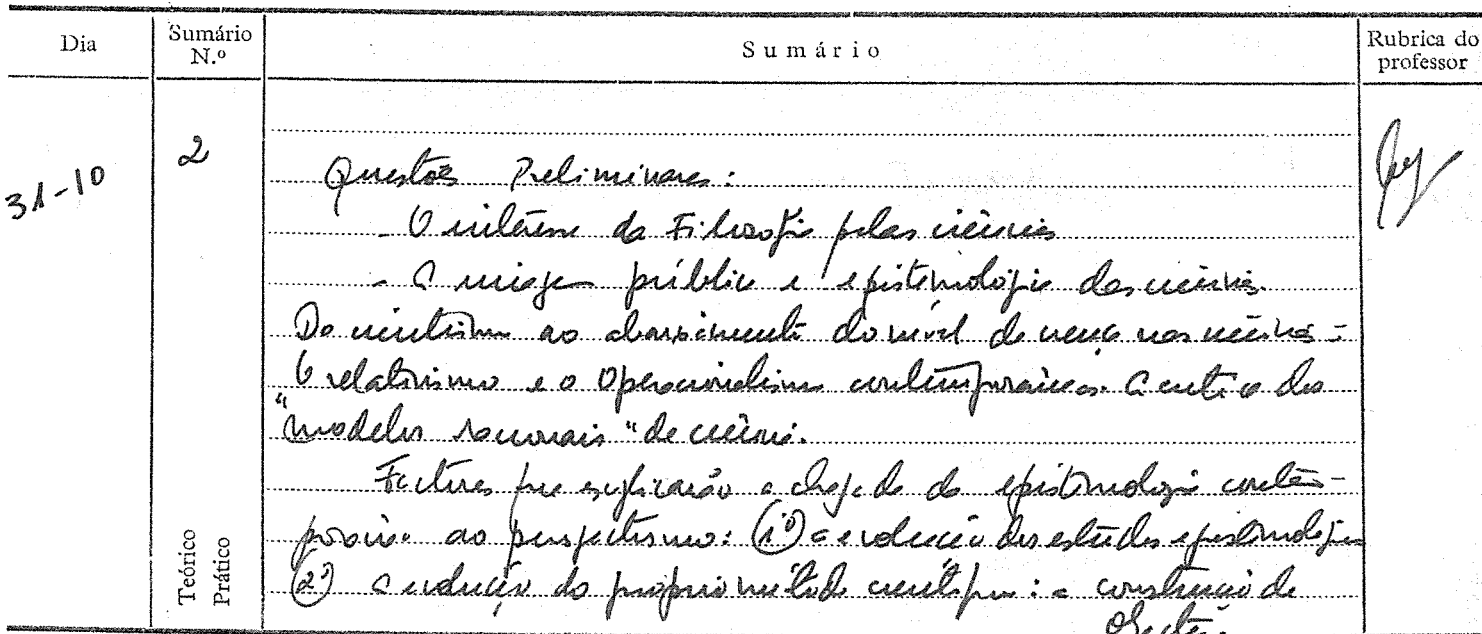 Dia
Sumário N.º
Sumário
Rubrica do professor
31-10
2
Questões Preliminares:
- O interesse da Filosofia pelas ciências
- A imagem pública e epistemológica das ciências.
Do cientismo ao do nível de nas ciências -
O relativismo e o Operacionalismo contemporâneos. A crítica dos
"modelos racionais" de ciência.
Factores que explicarão a chegada da epistemologia contem-
porânea ao perspectivismo: (1º) a evolução dos estudos epistemológicos
(2º) a evolução do próprio método científico: a construção de
Teórico
Prático